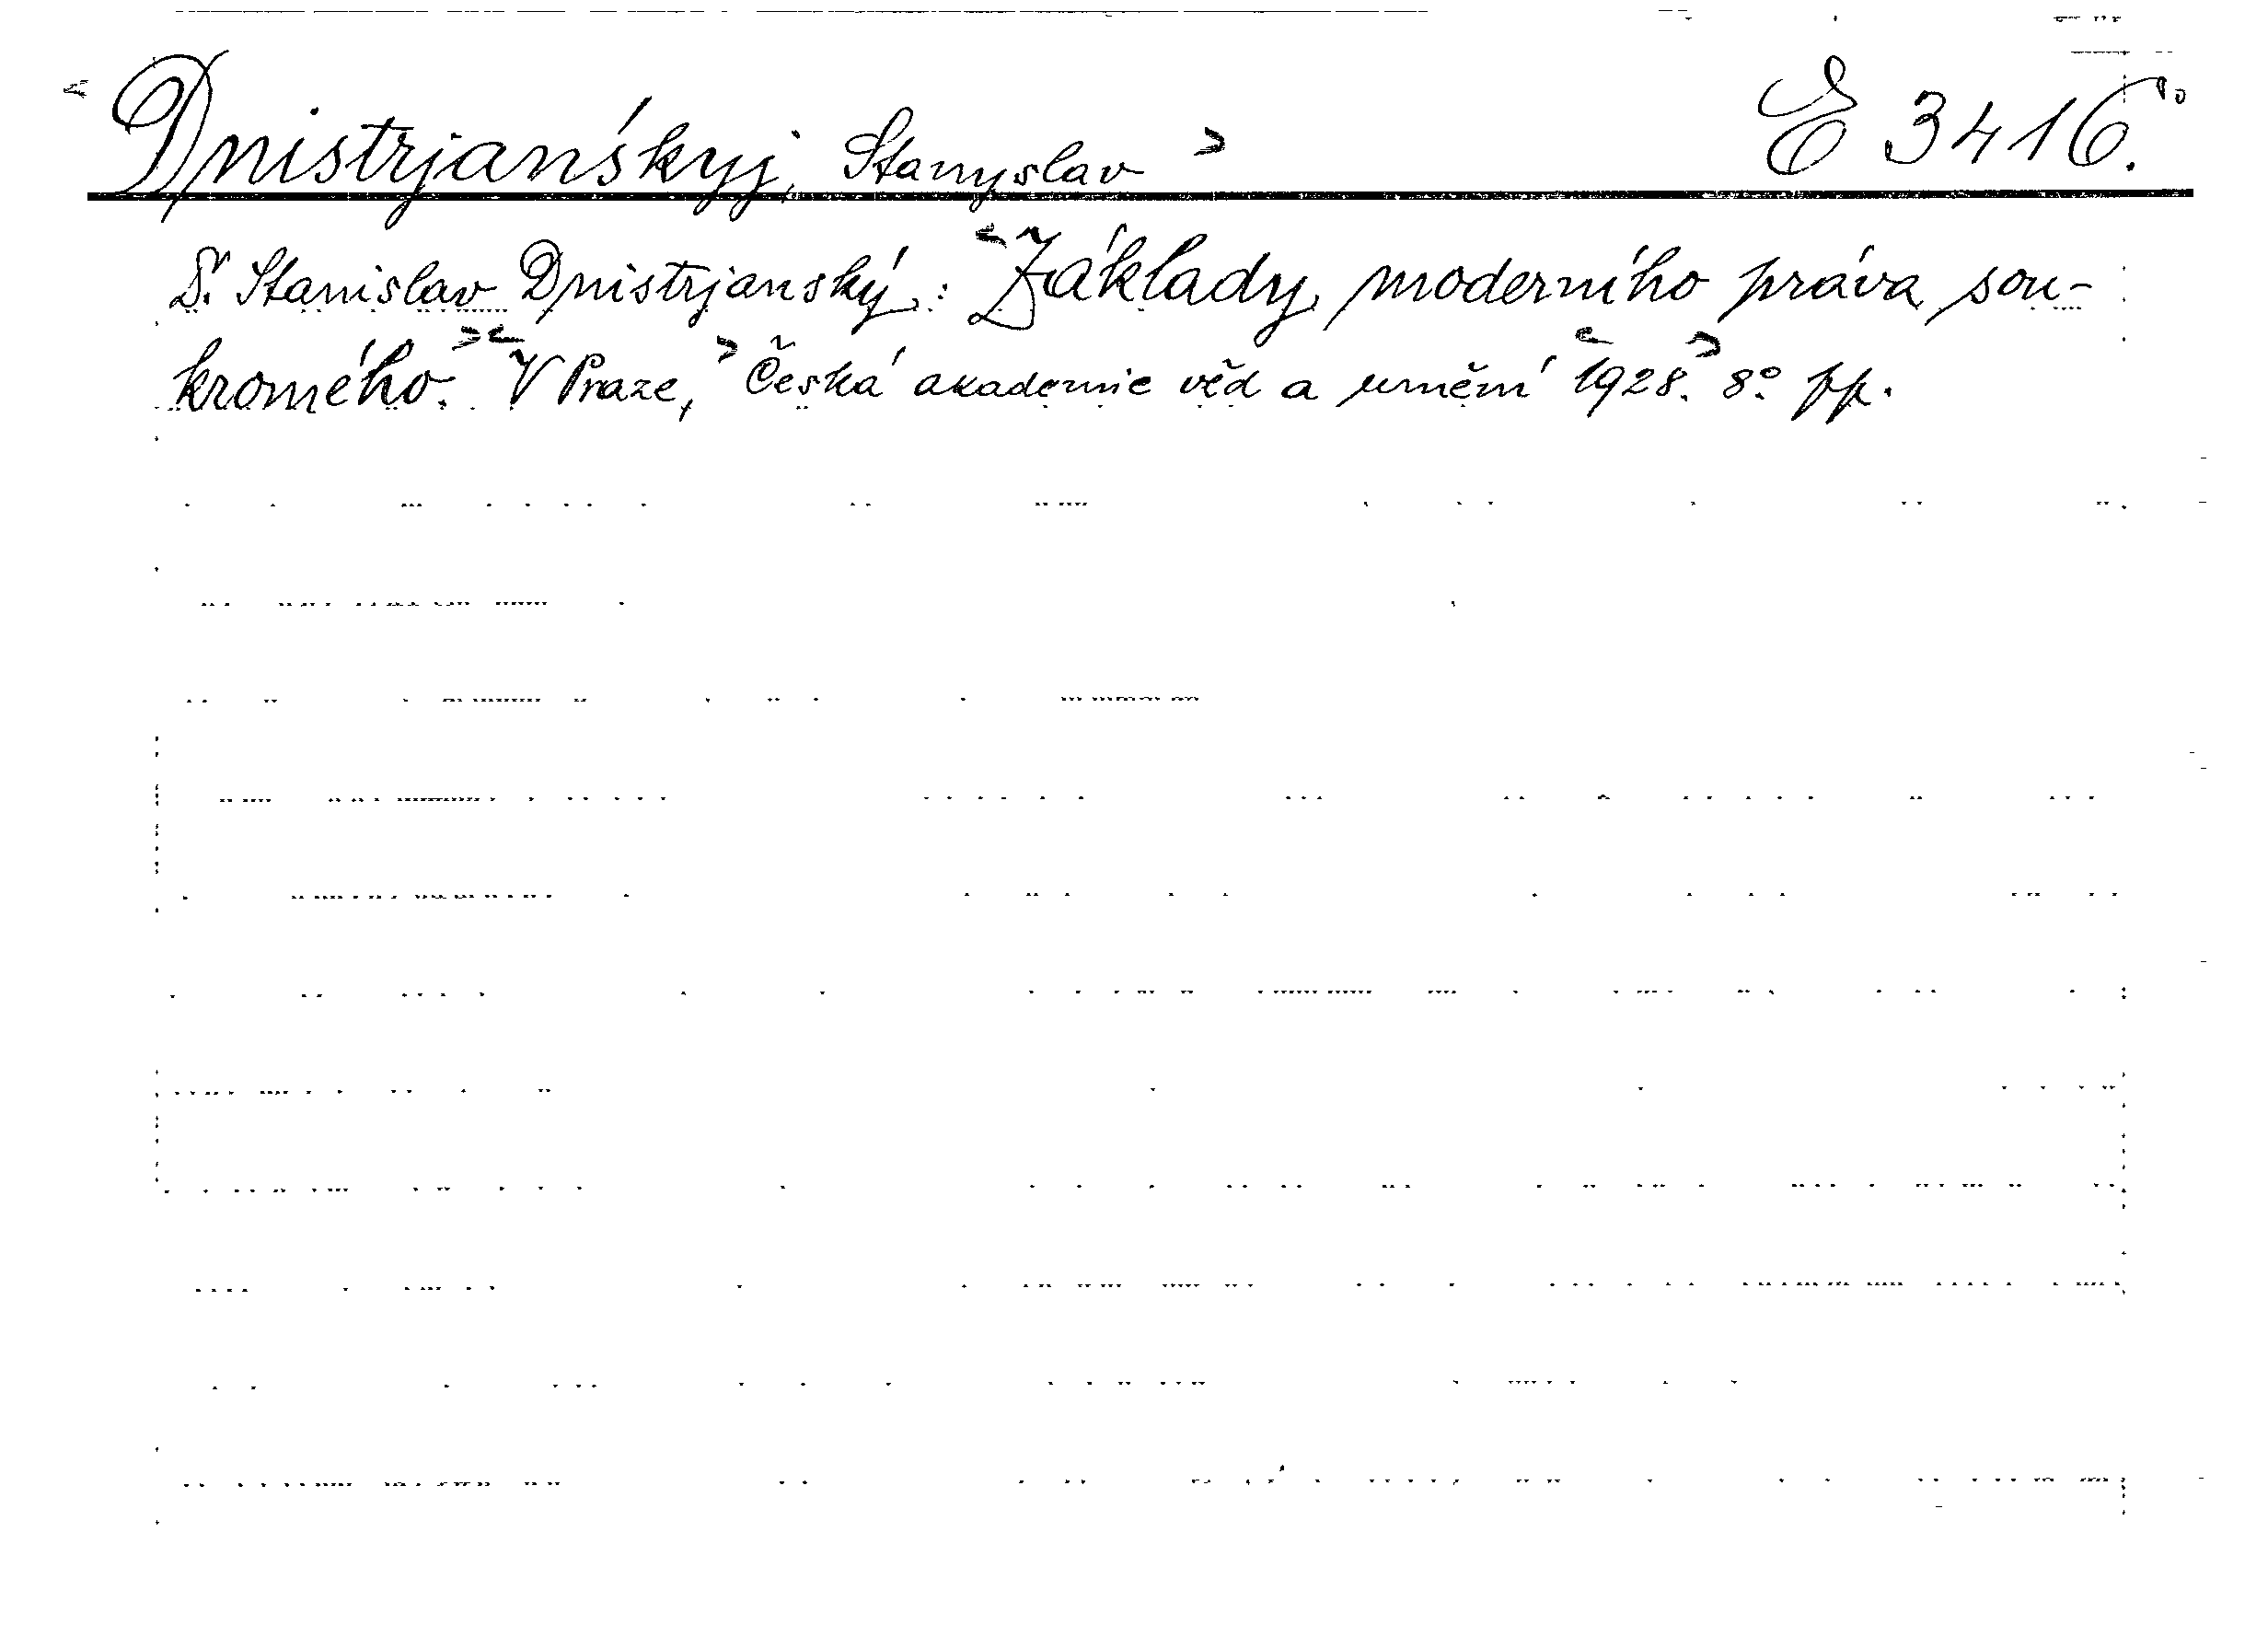 Dnistrjanśkyj, Stanyslav E 3416.
Dr. Stanislav Dnistrjanský: Základy moderního práva sou-
kromého. V Praze, Česká akademie věd a umění 1928. 8° pp.